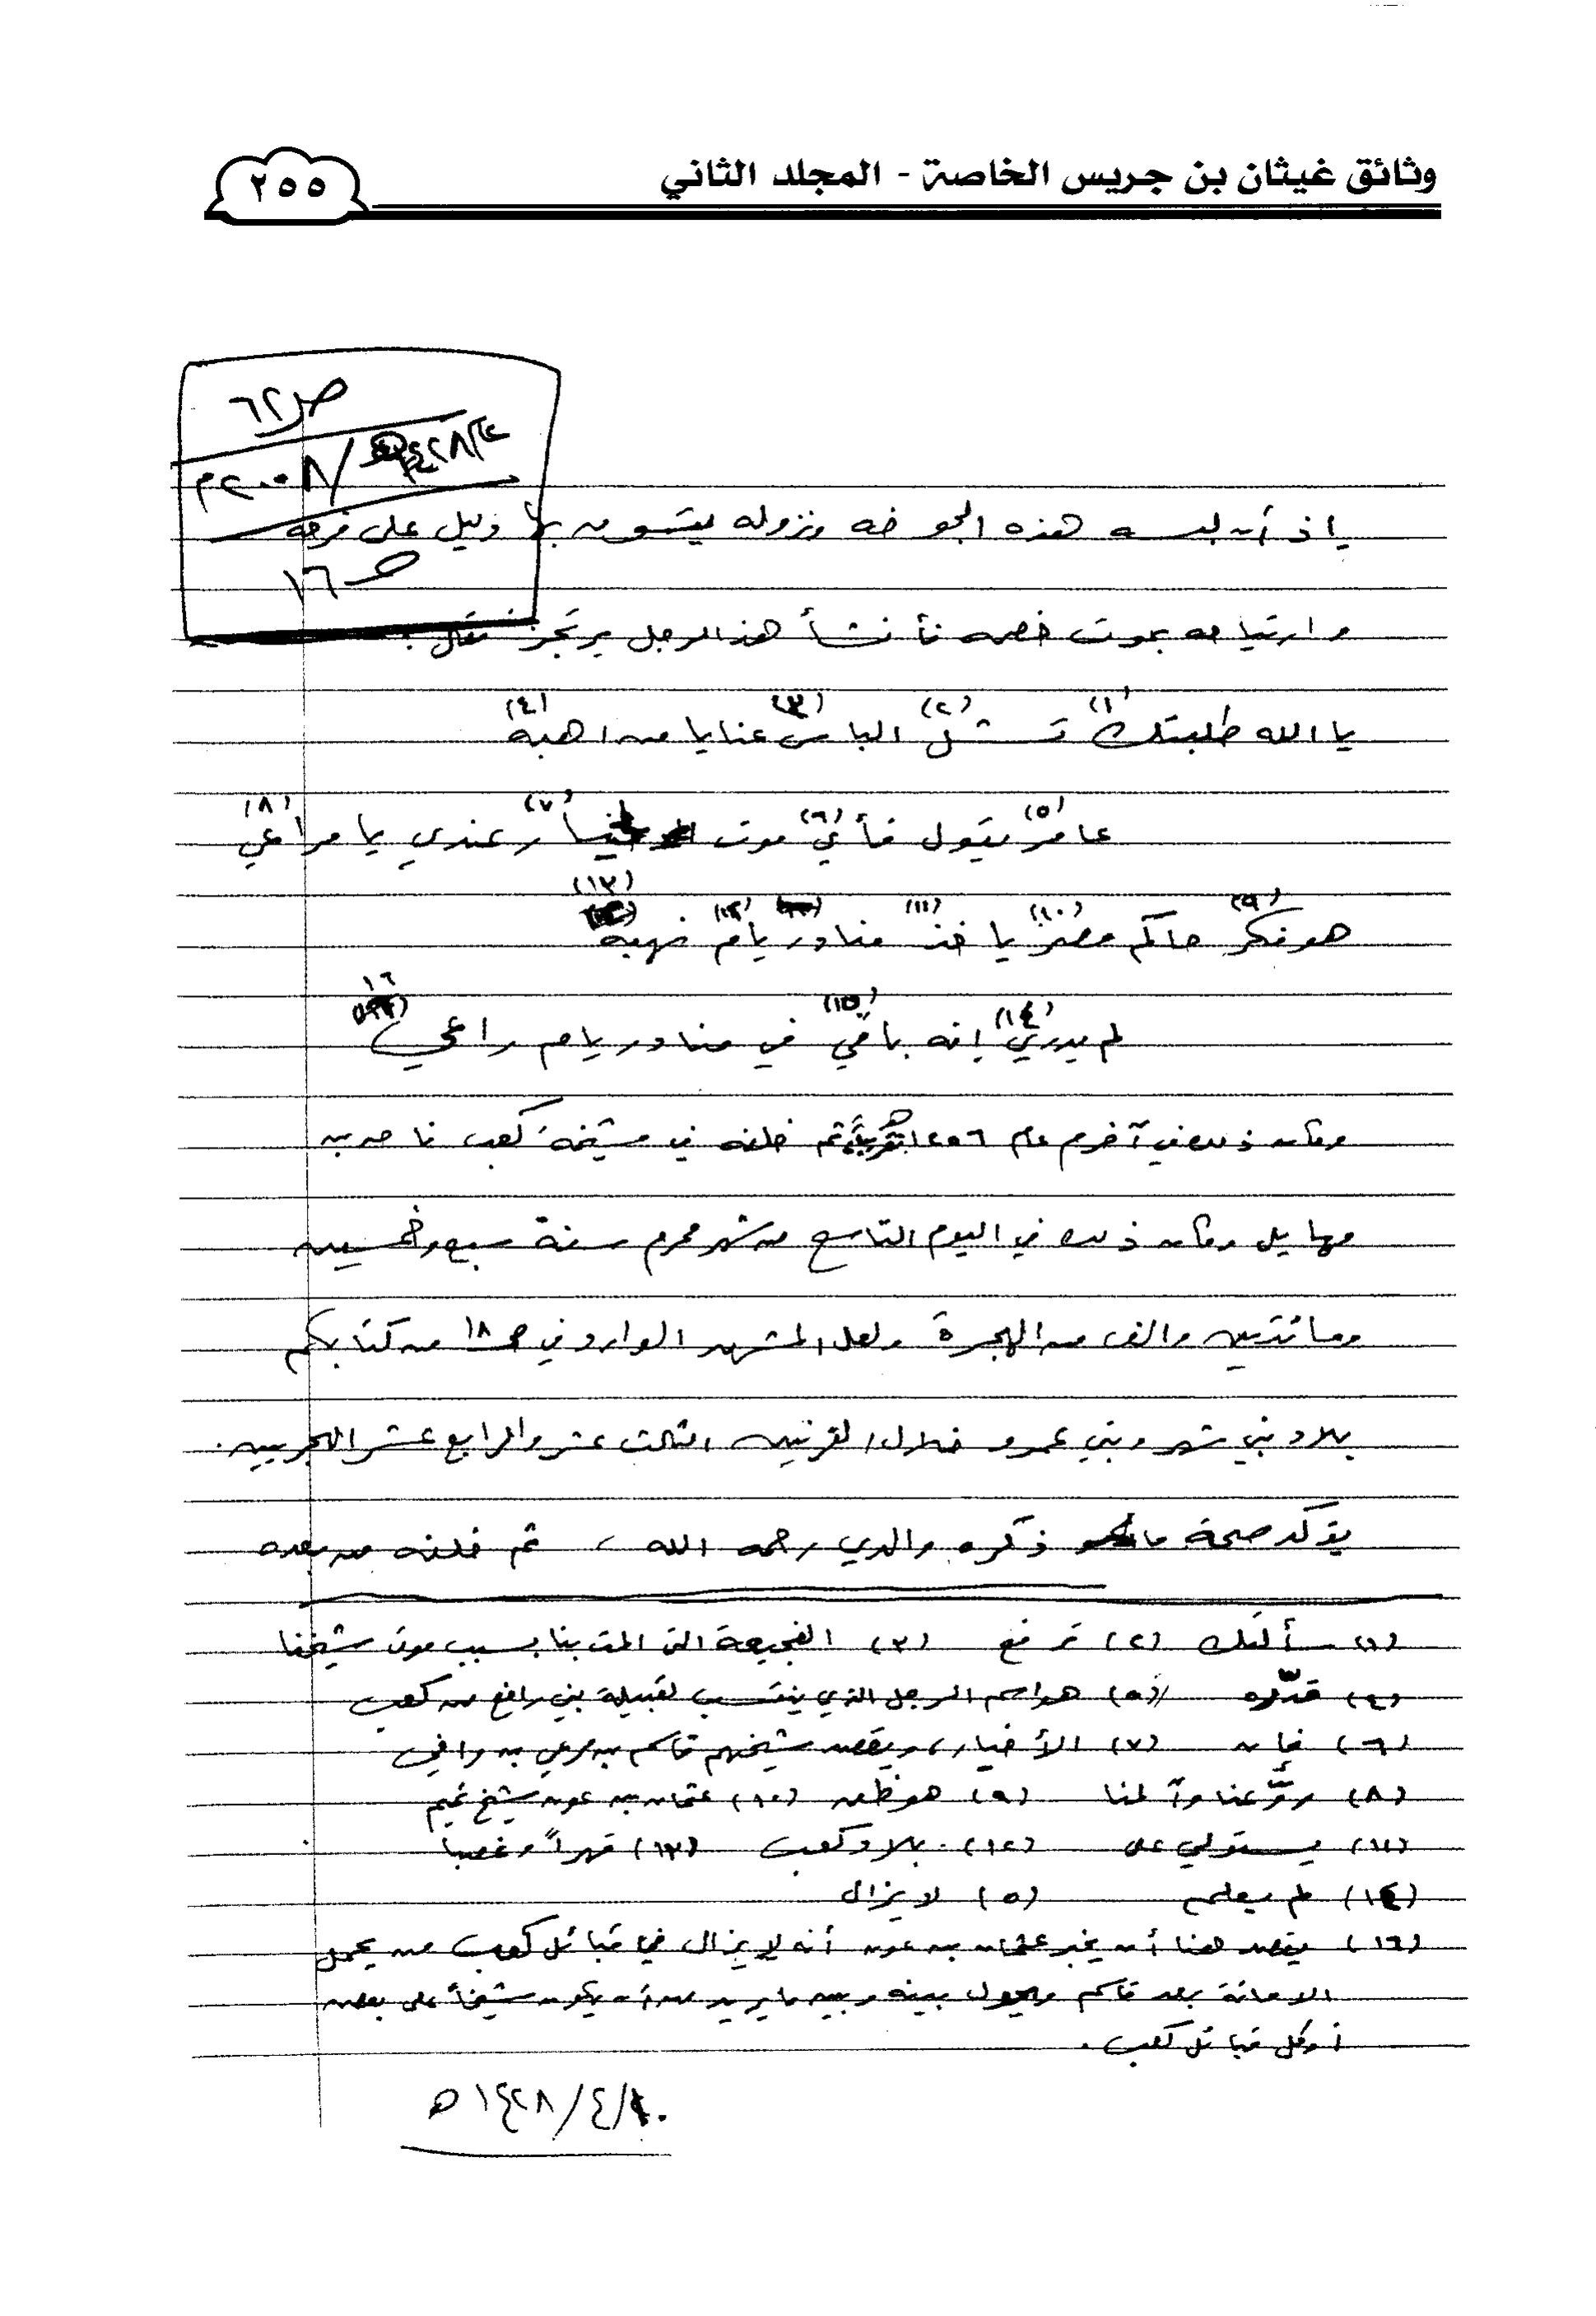 وثائق غيثان بن جريس الخاصة - المجلد الثاني
٢٥٥
ص ٦٢
١٤٢٨هـ / ٢٠٠٨م
ص ١٦
إذ أن لبسه هذه الجوخه ونزوله بها دليل على فرحه
وارتياحه بموت خصمه فأنشأ هذا الرجل يرتجز فقال:
يا الله طلبتك (١) تشل (٢) الباس (٣) عنايا من اهبه (٤)
عامر (٥) يقول فأي (٦) موت خيار (٧) عندي يا مراعي (٨)
هو فكر (٩) حاكم مصر (١٠) ياخذ (١١) منادر يام (١٢) نهبه (١٣)
لم يدري (١٤) إنه باقي (١٥) في منادر يام راعي (١٦)
وكان ذلك في آخر عام ١٢٥٦هـ تقريباً ثم خلفه في مشيخة كعب ناصر بن
مهايل وكان ذلك في اليوم التاسع من شهر محرم سنة سبع وخمسين
ومائتين والف من الهجرة ولعل المشهد الوارد في ص ١٨ من كتابكم
بلاد بني شهر وبني عمرو خلال القرنين الثالث عشر والرابع عشر الهجريين.
يؤكد صحة ما ذكره والدي رحمه الله ، ثم خلفه من بعده
(١) سألتك (٢) ترفع (٣) الفجيعة التي المت بنا بسبب موت شيخنا
(٤) قدّره (٥) هو اسم الرجل الذي ينتسب لقبيلة بني رافع من كعب
(٦) فإن (٧) الأخيار، ويقصد شيخهم قاسم بن مرعي بن رافع
(٨) روّعنا وآلمنا (٩) هو ظن (١٠) عثمان بن عون شيخ غيم
(١١) يستولي على (١٢) بلاد كعب (١٣) قهراً وغصبا
(١٤) لم يعلم (١٥) لا يزال
(١٦) يقصد هنا أن يخبر عثمان بن عون أنه لا يزال في قبائل كعب من يحمل
الامانة بعد قاسم ويحول بينه وبين ما يريد من أن يكون شيخاً على بعض
أو كل قبائل كعب.
١٠/٤/١٤٢٨ هـ